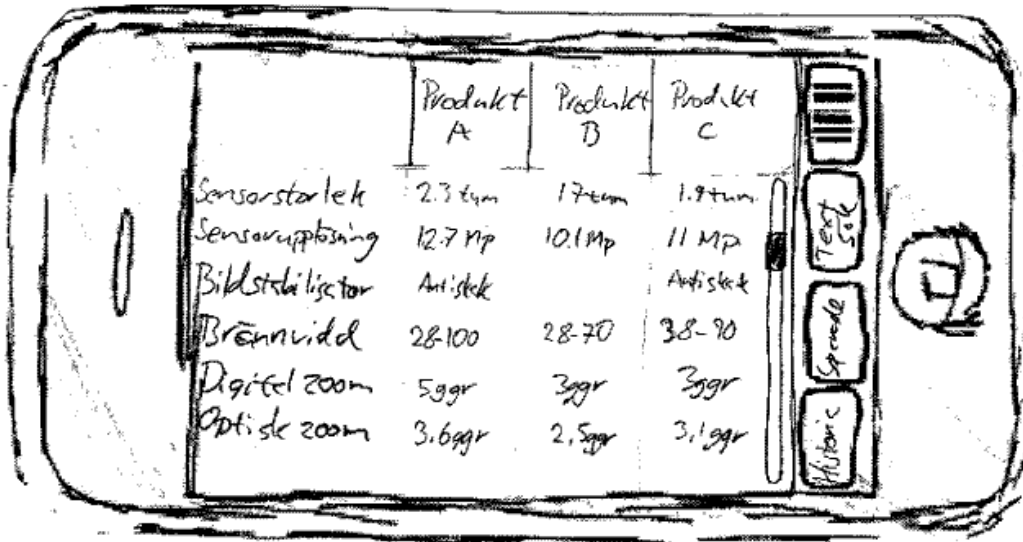 Produkt A Produkt B Produkt C
Sensorstorlek 2.3 tum 17 tum 1.9 tum
Sensorupplösning 12.7 Mp 10.1 Mp 11 Mp
Bildstabilisator Antiskak Antiskak
Brännvidd 28-100 28-70 38-90
Digital zoom 5ggr 3ggr 3ggr
Optisk zoom 3,6ggr 2,5ggr 3,1ggr
Text Sök
Sparade
Historic